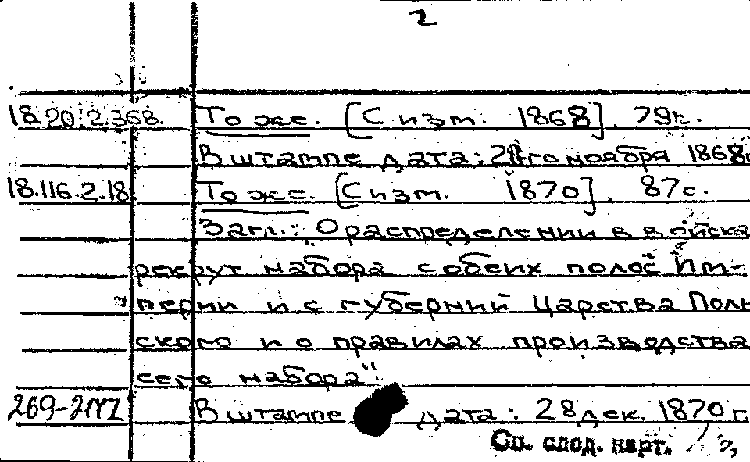 2
18.20.2.368. То же. [С изм. 1868]. 79с.
В штампе дата: 28го ноября 1868
18.116.2.18 То же. [С изм. 1870]. 87с.
Загл.: О распределении в войска
рекрут набора с обеих полос Им-
перии и с губерний Царства Поль
ского и о правилах производства
сего набора".
В штампе дата: 28 дек. 1870 г
См. след. карт.